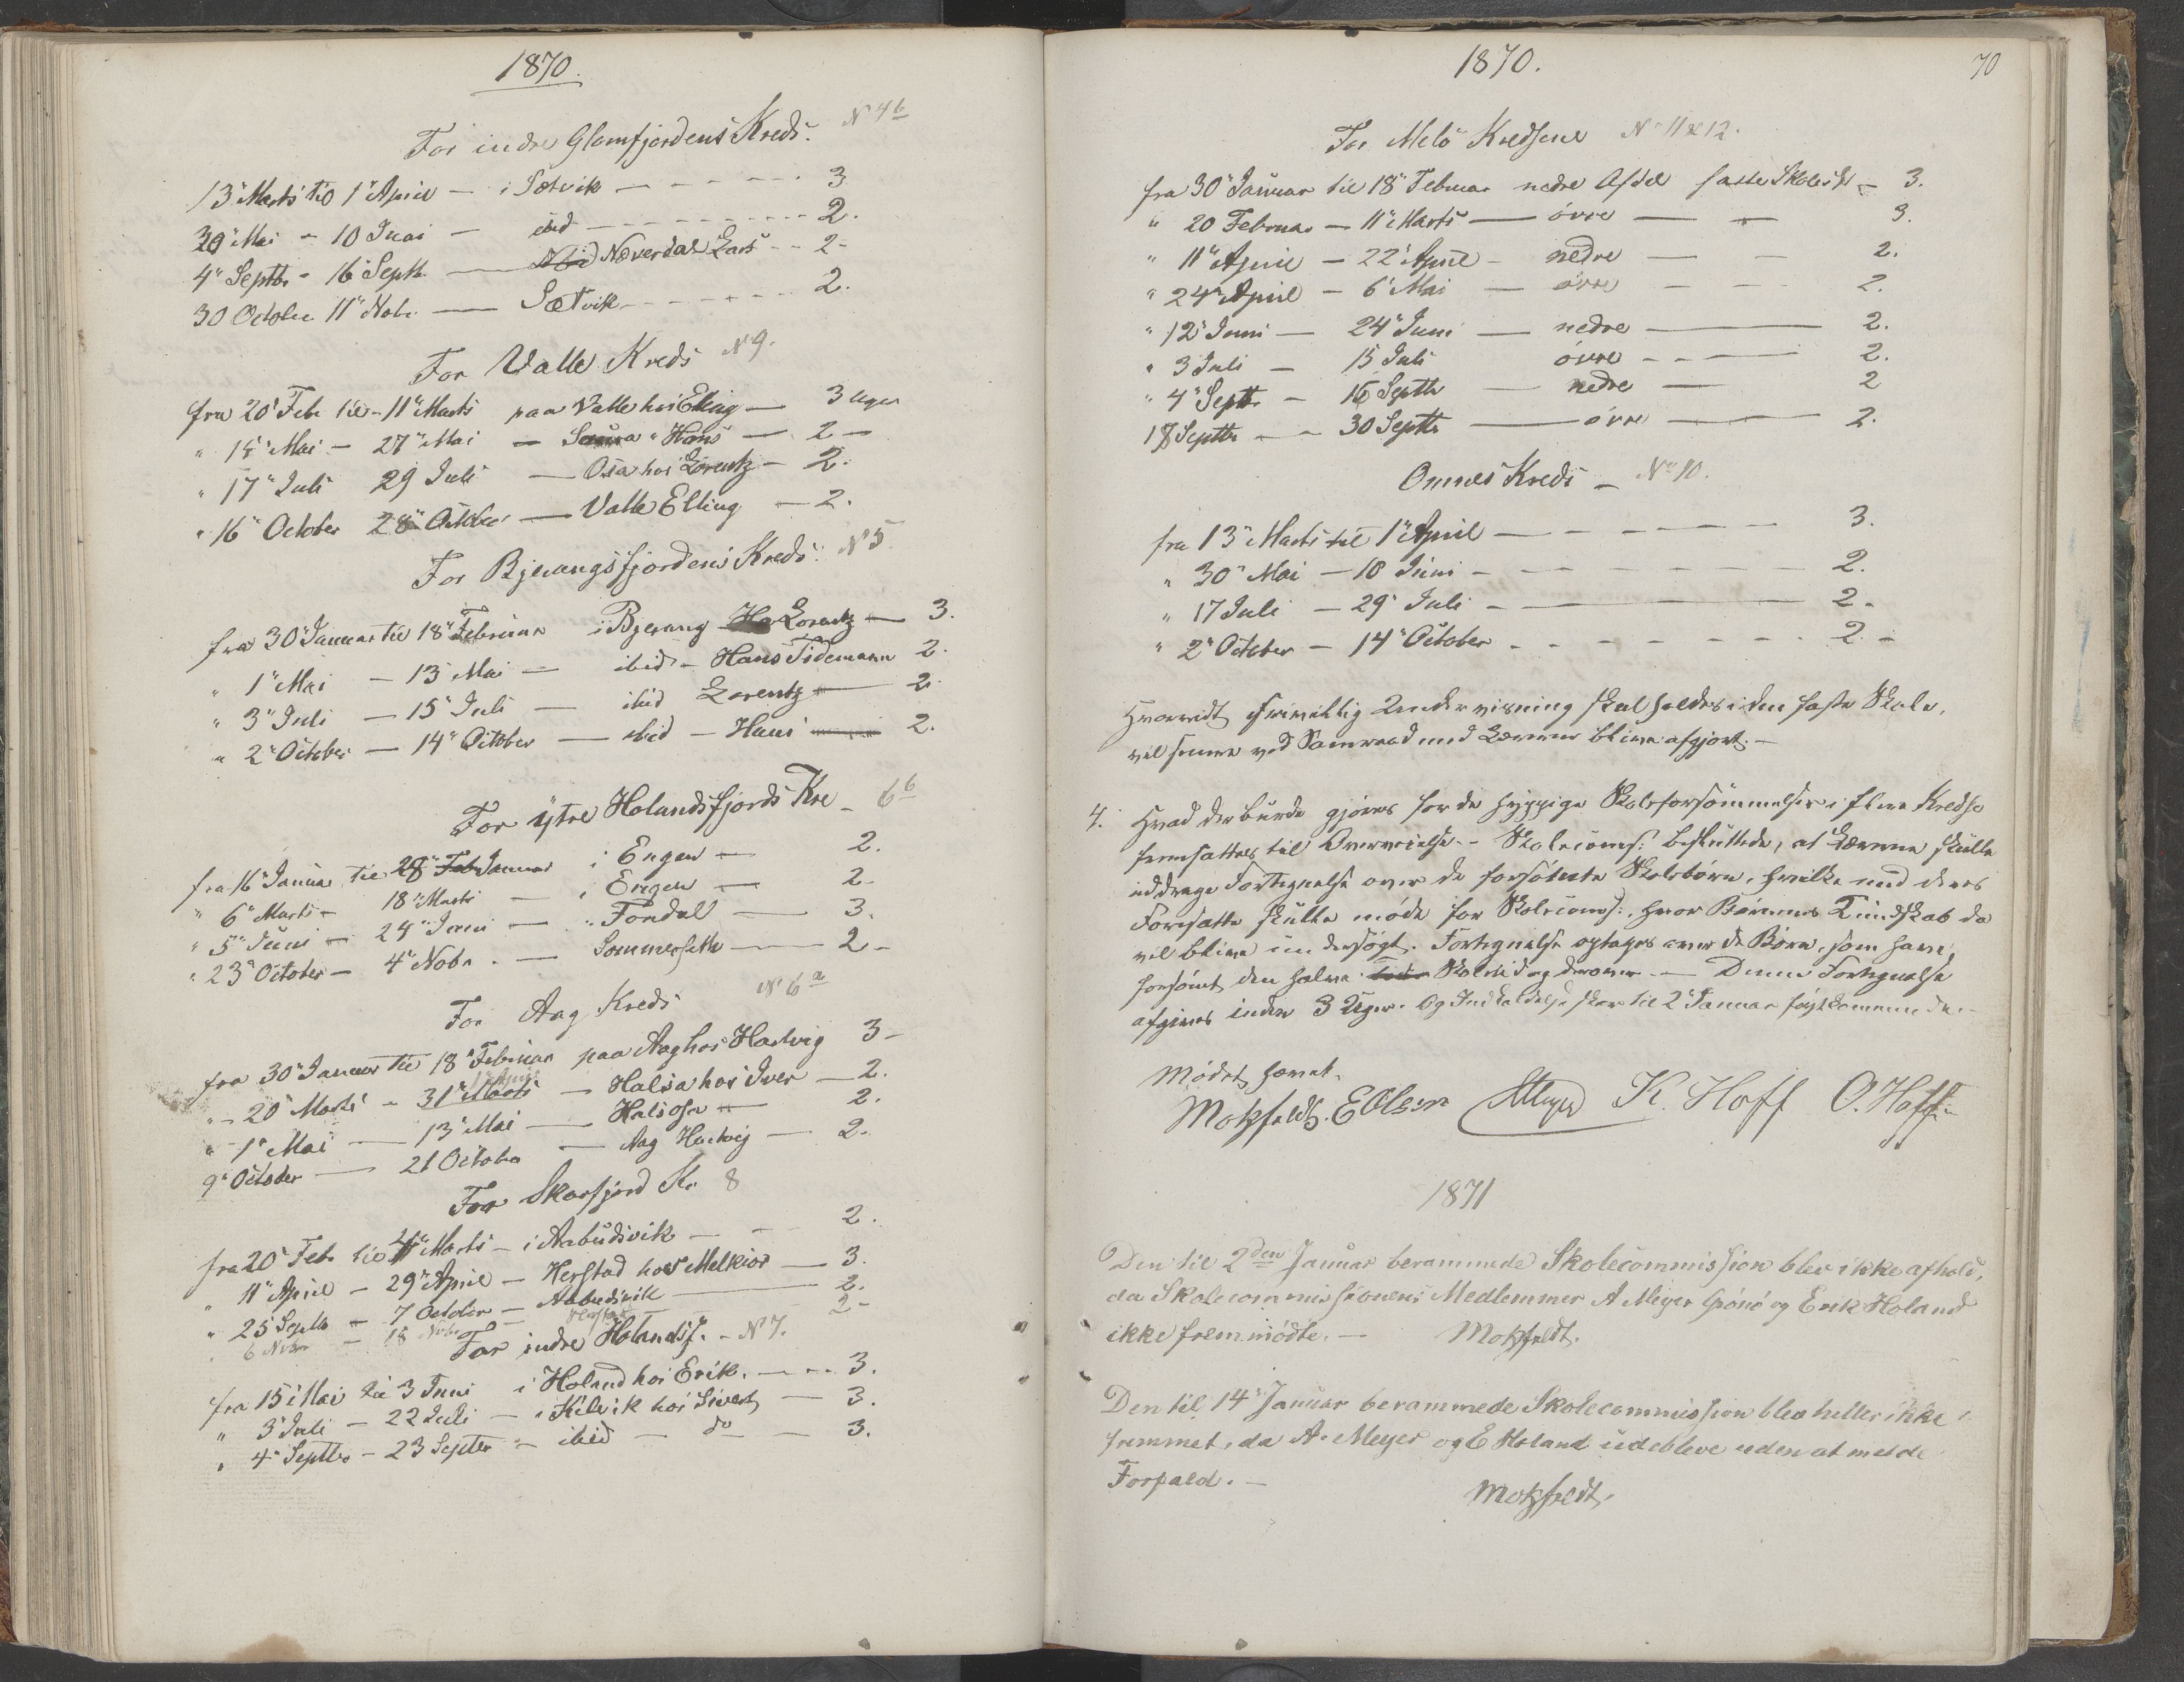 1870.
For indre Glomfjordens Kreds. N 4b
13" Marts til 1" April — i Sætvik — 3
30" Mai - 10 Juni — ibid — 2.
4" Septbr - 16 Septb. — Neverdal Lars - - 2 -
30 October 11" Nobr — Sætvik — 2.
For Valle Kreds N 9.
fra 20" Febr til - 11" Marts paa Valle hos Elling — 3 Uger
" 15" Mai - 27" Mai — " Hans — 2 —
" 17" Juli 29 Juli — Osa hos Lorentz — 2.
" 16" October 28" October — Valle Elling — 2.
For Bjerangsfjordens Kreds. N 5.
fra 30" Januar til 18" Februar i Bjerang Ha Lorentz — 3.
" 1" Mai — 13" Mai — ibid - Hans Tidemann 2.
" 3" Juli — 15" Juli — ibid Lorentz — 2.
" 2" October — 14" October — ibid — Hans — 2.
For ytre Holandsfjords Kre - 6b
fra 16" Januar til 28" Feb Januar i Engen — 2.
" 6" Marts — 18" Marts — i Engen — 2 -
" 5" Juni — 24" Juni — " Fondal — 3.
" 23" October — 4" Nobr. — Sommerseth — 2 -
For Aag Kreds N 6a
fra 30" Januar til 18" Februar paa Aag hos Hartvig 3 -
1" April
" - 20" Marts - 31" Marts — Halsa hos Iver — 2.
" 1" Mai — 13" Mai — Halsosa — 2.
9" October — 21 October — Aag Hartvig — 2.
For Skarsfjord Kr. 8
fra 20" Feb. til 4" Marts — i Aabudsvik — 2.
" 11" April — 29" April — Herstad hos Melkior — 3.
" 25 Septb — 7 October — Aabudsvik — 2.
" 6 Nobr — 18 Nobr Herstad 2 -
For indre Holandsfj. - N 7.
fra 15 Mai til 3 Juni i Holand hos Erik. — 3.
" 3" Juli — 22 Juli — i Kilvik hos Sivert — 3.
" 4" Septbr. — 23 Septbr — ibid — do — 3.
1870. 70
For Melö Kredsene No 11 & 12.
fra 30" Januar til 18" Februar nedre Afdel faste Skole — 3.
" 20 Februar — 11" Marts — övre — 3.
" 11" April — 22" April — nedre — 2.
" 24" April — 6" Mai — övre — 2.
" 12" Juni — 24" Juni — nedre — 2.
" 3 Juli — 15 Juli övre — 2.
" 4" Septb. — 16 Septb — nedre — 2
18 Septbr — 30 Septbr — övre — 2.
Onnæs Kreds — No 10.
fra 13" Marts til 1" April — 3.
" 30" Mai — 10 Juni — 2.
" 17 Juli — 29" Juli — 2 -
" 2" October — 14" October — 2 -
Hvorvidt frivillig Undervisning skal holdes i den faste Skole,
vil senere ved Samraad med Læreren blive afgjort. —
4. Hvad der burde gjöres for de hyppige Skoleforsömmelser i flere Kredse
fremsattes til Overveielse. - Skolecoms: besluttede, at Lærerne skulle
inddrage Fortegnelse over de forsömte Skolebörn, hvilke med deres
Foresatte skulle möde for Skolecoms:, hvor Börnenes Kundskab da
vil blive undersögt. Fortegnelse optages over de Börn, som have
forsömt den halve Skoletid og derover. — Denne Fortegnelse
afgives inden 3 Uger. Og Indkaldelse sker til 2" Januar förstkommende. -
Mödet hævet.
Motzfeldt. E Olsen AMeyer K. Hoff O. Hoff
1871
Den til 2den Januar berammede Skolecommission blev ikke afholdt,
da Skolecommissionens Medlemmer A Meyer Grönö og Erik Holand
ikke fremmödte. — Motzfeldt.
Den til 14" Januar berammede Skolecommission blev heller ikke
fremmet, da A. Meyer og E Holand udebleve uden at melde
Forfald. — Motzfeldt.